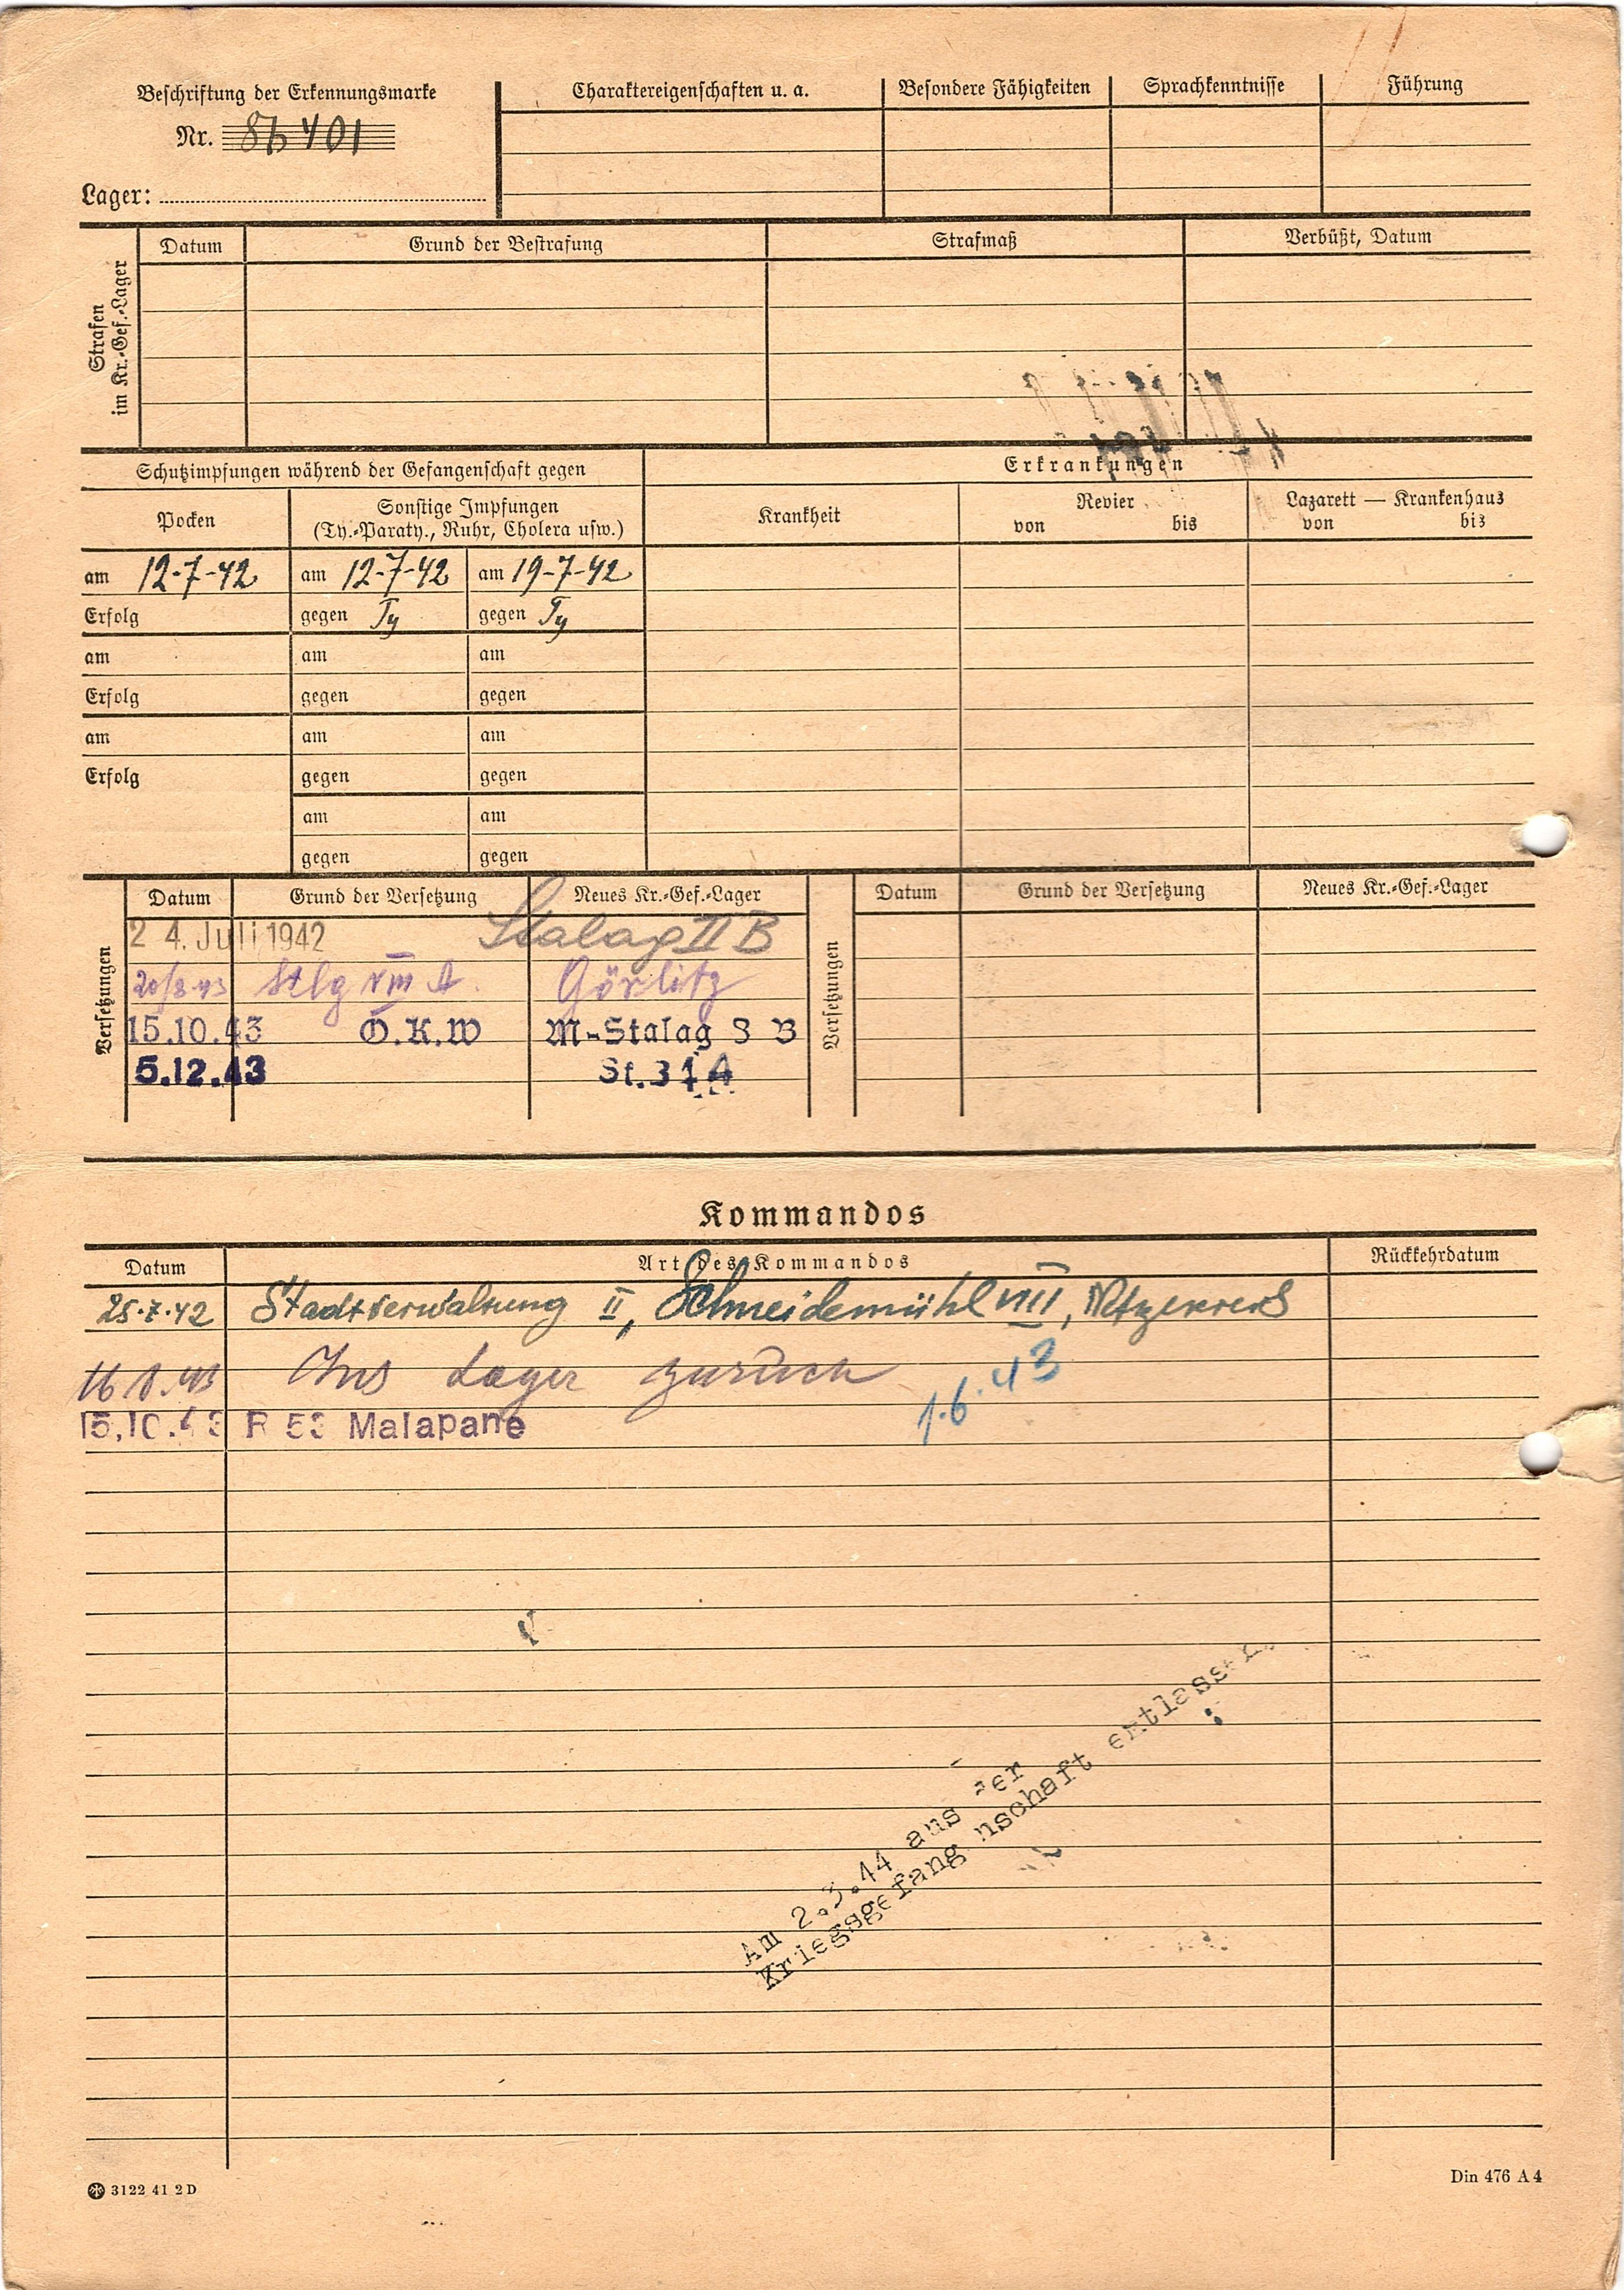 Beschriftung der Erkennungsmarke
Nr. 86401
Lager:
Charaktereigenschaften u. a.
Besondere Fähigkeiten
Sprachkenntnisse
Führung
Strafen
im Kr.-Gef.-Lager
Datum
Grund der Bestrafung
Strafmaß
Verbüßt, Datum
Schutzimpfungen während der Gefangenschaft gegen
Erkrankungen
Pocken
Sonstige Impfungen
(Ty.-Paraty., Ruhr, Cholera usw.)
Krankheit
Revier
von bis
Lazarett — Krankenhaus
von bis
am 12-7-42 am 12-7-42 am 19-7-42
Erfolg gegen Ty gegen Ty
am am am
Erfolg gegen gegen
am am am
Erfolg gegen gegen
am am
gegen gegen
Versetzungen
Datum Grund der Versetzung Neues Kr.-Gef.-Lager
24. Juli 1942 Stalag II B
20/8 43 Stlg VIII A. Görlitz
15.10.43 O.K.W M-Stalag 8 B
5.12.43 St.344
Versetzungen
Datum Grund der Versetzung Neues Kr.-Gef.-Lager
Kommandos
Datum Art des Kommandos Rückkehrdatum
25.7.42 Stadtverwaltung II, Schneidemühl VIII, Netzekreis
16.8.43 Ins Lager zurück
1.6.43
15.10.43 Malapane
Am 2.3.44 aus der
Kriegsgefangenschaft entlassen
3122 41 2 D
Din 476 A 4